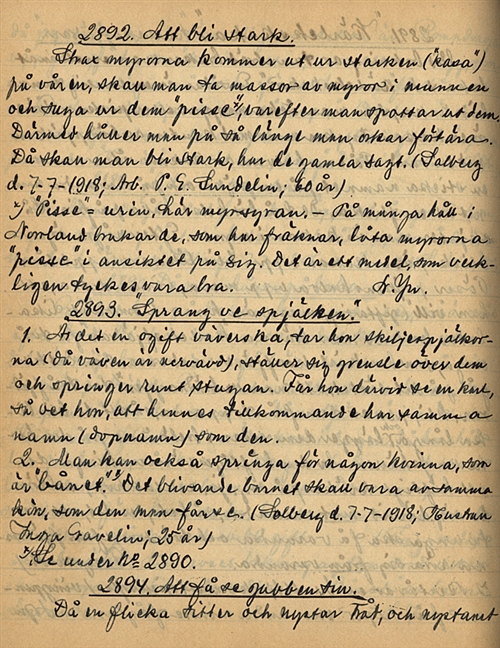 2892. Att bli stark.
Strax myrorna kommer ut ur stacken ("kasa")
på våren, skall man ta massor av myror i munnen
och suga ur dem "pisse"x), varefter man spottar ut dem.
Därmed håller man på så länge man orkar förtära.
Då skall man bli stark, har de gamla sagt. (Solberg
d. 7-7-1918; Arb. P. E. Sundelin; 60 år)
x) "Pisse" = urin, här myrsyran. – På många håll i
Norrland brukar de, som har fräknar, låta myrorna
"pisse" i ansiktet på sig. Det är ett medel, som verk-
ligen tyckes vara bra.
2893. "Sprang ve spjälken".
1. Är det en ogift väverska, tar hon skiljespjälkor-
na (då väven är nervävd), ställer sig grensle över dem
och springer runt stugan. Får hon därvid se en karl,
så vet hon, att hennes tillkommande har samma
namn (dopnamn) som den.
2. Man kan också springa för någon kvinna, som
är "bånet".x) Det blivande barnet skall vara av samma
kön, som den man får se. (Solberg d. 7-7-1918; Hustrun
Gavelin; 25 år)
x) Se under No 2890.
2894. Att få se gubben sin.
Då en flicka sitter och nystar tråt, och nystanet